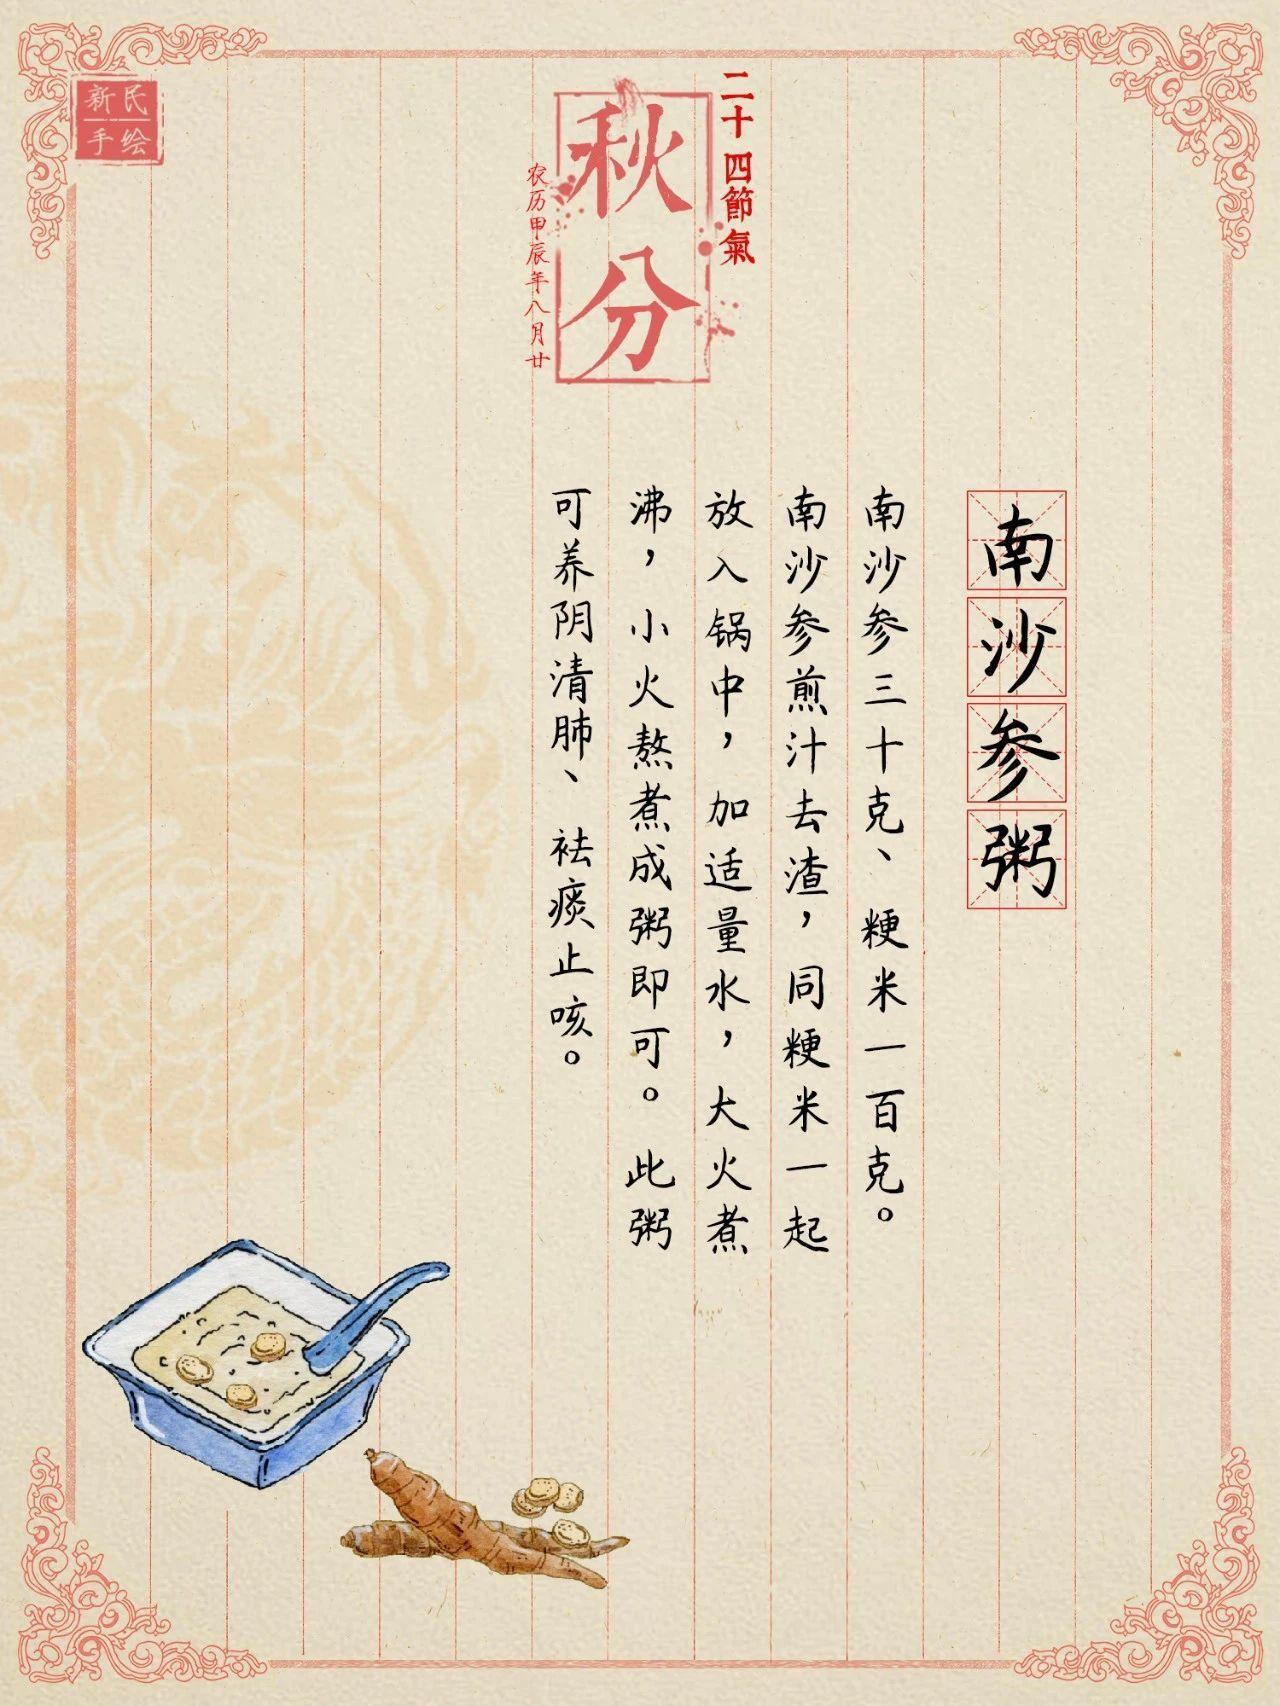 新民
手绘
二十四節氣
秋分
农历甲辰年八月廿
南沙参粥
南沙参三十克、粳米一百克。
南沙参煎汁去渣，同粳米一起
放入锅中，加适量水，大火煮
沸，小火熬煮成粥即可。此粥
可养阴清肺、祛痰止咳。